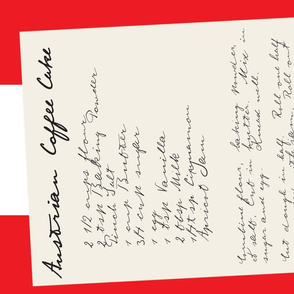 Austrian Coffee Cake
2 1/2 cups flour
2 tsp Baking Powder
Pinch Salt
1 cup Butter
3/4 cup sugar
1 egg
1 tsp Vanilla
2 tbsp Milk
1/2 tsp Cinnamon
Apricot Jam
Combine flour, baking powder,
& salt. Cut in butter. Mix in
sugar and egg. Knead well.
Cut dough in half. Roll one half
Roll out